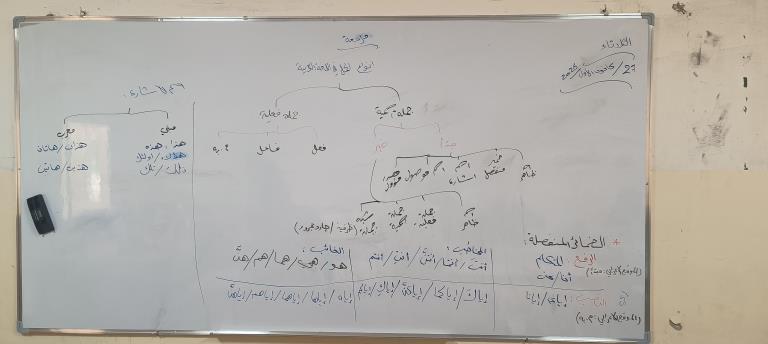 الثلاثاء
مراجعة
أنواع الجمل في اللغة العربية
جملة اسمية
جملة فعلية
مبتدأ
خبر
فعل
فاعل
م. به
ظاهر
ضمير منفصل
اسم اشارة
اسم موصول
ظاهر
جملة فعلية
جملة اسمية
شبه جملة (ظرفية / جار ومجرور)
مبني
معرب
هذا، هذه
هذان / هاتان
هؤلاء / أولئك
ذلك / تلك
هذين / هاتين
* الضمائر المنفصلة:
الرفع: المتكلم
أنا / نحن
المخاطب:
أنتَ / أنتما / أنتنَّ / أنتِ / أنتم
الغائب:
هو / هي / هما / هم / هنَّ
إياي / إيانا
إياكَ / إياكما / إياكنَّ / إياكِ / إياكم
إياه / إياها / إياهما / إياهم / إياهنَّ